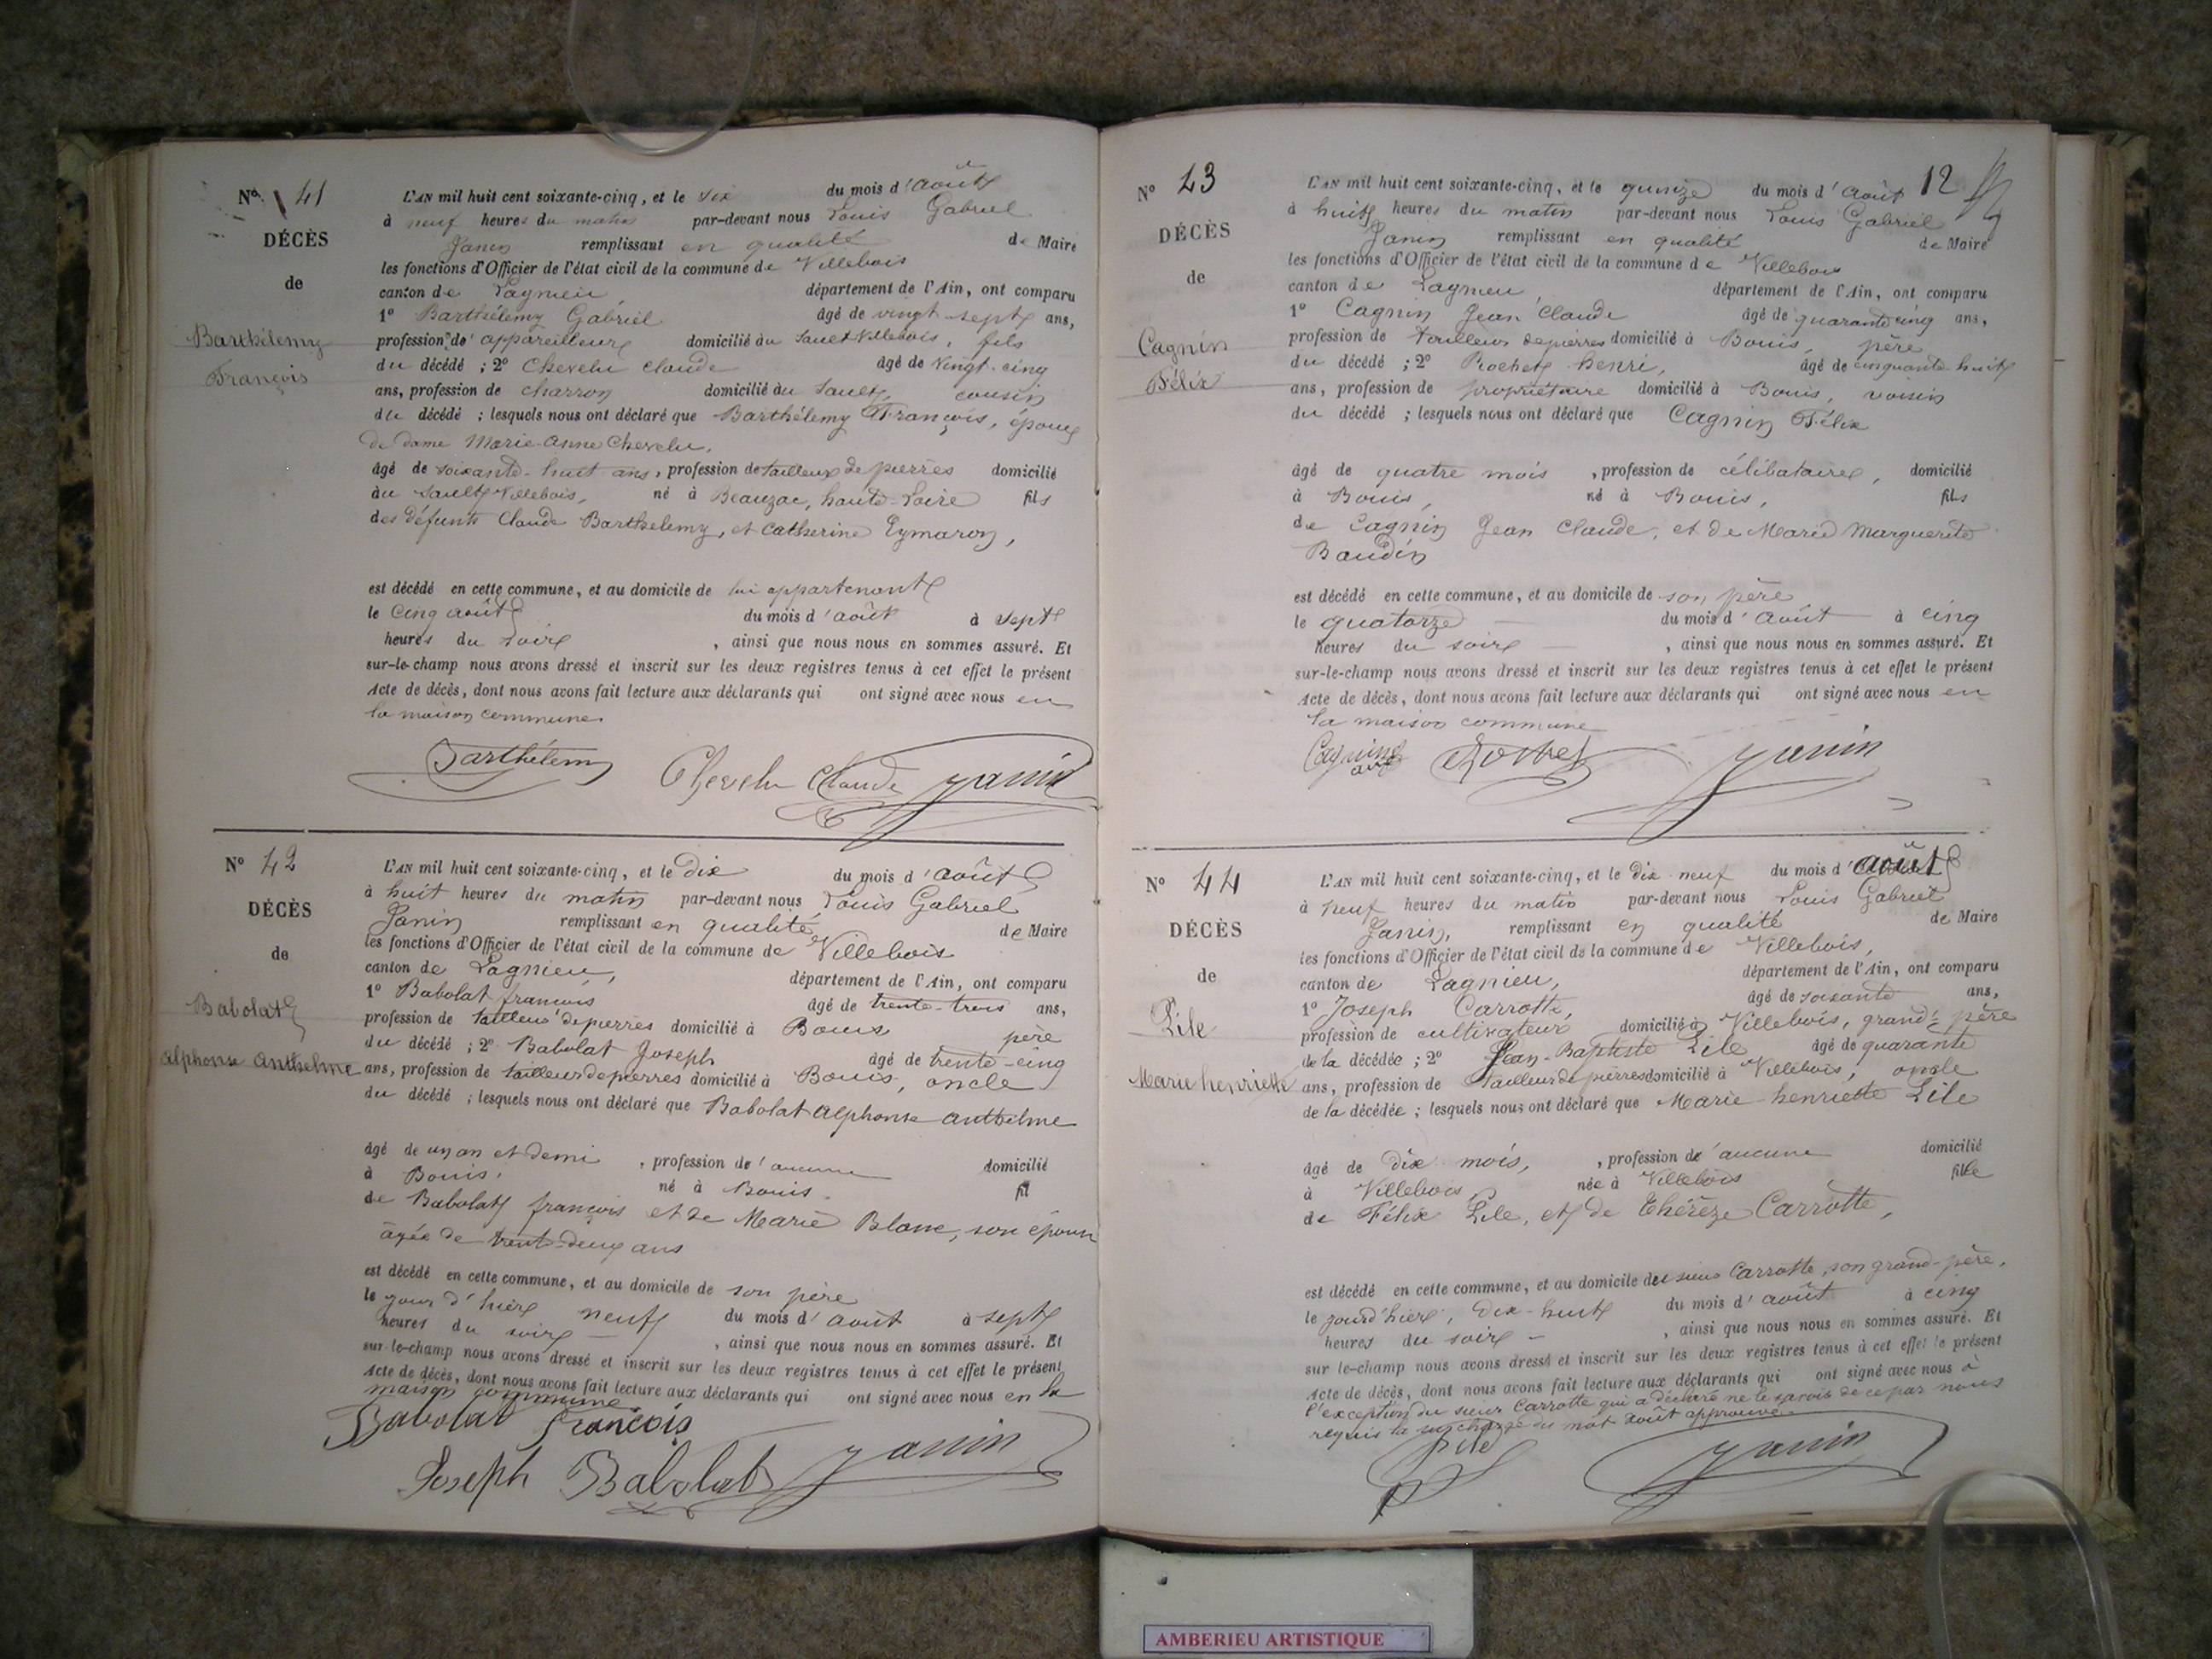 N° 41
DÉCÈS
de
Barthélemy
François
L'AN mil huit cent soixante-cinq, et le six du mois d'août
à neuf heures du matin par-devant nous Louis Gabriel
Janin remplissant en qualité de Maire
les fonctions d'Officier de l'état civil de la commune de Villebois
canton de Lagnieu département de l'Ain, ont comparu
1° Barthélemy Gabriel âgé de vingt sept ans,
profession d'appareilleur domicilié au Sault Villebois, fils
du décédé ; 2° Chevelu Claude âgé de vingt-cinq
ans, profession de charron domicilié au Sault, cousin
du décédé ; lesquels nous ont déclaré que Barthélemy François, époux
de dame Marie-Anne Chevelu,
âgé de soixante-huit ans, profession de tailleur de pierres domicilié
au Sault Villebois, né à Beauzac, haute-Loire fils
des défunts Claude Barthelemy, et Catherine Eymaron,
est décédé en cette commune, et au domicile de lui appartenant
le cinq août du mois d'août à sept
heures du soir, ainsi que nous nous en sommes assuré. Et
sur-le-champ nous avons dressé et inscrit sur les deux registres tenus à cet effet le présent
Acte de décès, dont nous avons fait lecture aux déclarants qui ont signé avec nous en
la maison commune
Barthélemy Chevelu Claude Janin
N° 42
DÉCÈS
de
Babolat
Alphonse Anthelme
L'AN mil huit cent soixante-cinq, et le Dix du mois d'août
à huit heures du matin par-devant nous Louis Gabriel
Janin remplissant en qualité de Maire
les fonctions d'Officier de l'état civil de la commune de Villebois
canton de Lagnieu, département de l'Ain, ont comparu
1° Babolat françois âgé de trente-trois ans,
profession de tailleur de pierres domicilié à Bouis père
du décédé ; 2° Babolat Joseph âgé de trente-cinq
ans, profession de tailleur de pierres domicilié à Bouis, oncle
du décédé ; lesquels nous ont déclaré que Babolat Alphonse Anthelme
âgé de un an et demi, profession d'aucune domicilié
à Bouis, né à Bouis fil
de Babolat françois et de Marie Blanc, son épouse
âgée de trente-deux ans
est décédé en cette commune, et au domicile de son père
le jour d'hier neuf du mois d'août à sept
heures du soir, ainsi que nous nous en sommes assuré. Et
sur-le-champ nous avons dressé et inscrit sur les deux registres tenus à cet effet le présent
Acte de décès, dont nous avons fait lecture aux déclarants qui ont signé avec nous en la
maison commune
Babolat François
Joseph Babolat Janin
12
N° 43
DÉCÈS
de
Cagnin
Félix
L'AN mil huit cent soixante-cinq, et le quinze du mois d'août
à huit heures du matin par-devant nous Louis Gabriel
Janin remplissant en qualité de Maire
les fonctions d'Officier de l'état civil de la commune de Villebois
canton de Lagnieu département de l'Ain, ont comparu
1° Cagnin Jean Claude âgé de quarante cinq ans,
profession de tailleur de pierres domicilié à Bouis, père
du décédé ; 2° Rochet henri, âgé de cinquante huit
ans, profession de propriétaire domicilié à Bouis, voisin
du décédé ; lesquels nous ont déclaré que Cagnin Félix
âgé de quatre mois, profession de célibataire, domicilié
à Bouis, né à Bouis, fils
de Cagnin Jean Claude, et de Marie Marguerite
Baudin
est décédé en cette commune, et au domicile de son père
le quatorze du mois d'août à cinq
heures du soir, ainsi que nous nous en sommes assuré. Et
sur-le-champ nous avons dressé et inscrit sur les deux registres tenus à cet effet le présent
Acte de décès, dont nous avons fait lecture aux déclarants qui ont signé avec nous en
la maison commune
Cagnin Rochet Janin
N° 44
DÉCÈS
de
Lile
Marie henriette
L'AN mil huit cent soixante-cinq, et le dix-neuf du mois d'août
à neuf heures du matin par-devant nous Louis Gabriel
Janin, remplissant en qualité de Maire
les fonctions d'Officier de l'état civil de la commune de Villebois,
canton de Lagnieu, département de l'Ain, ont comparu
1° Joseph Carrotte, âgé de soixante ans,
profession de cultivateur domicilié à Villebois, grand-père
de la décédée ; 2° Jean-Baptiste Lile âgé de quarante
ans, profession de tailleur de pierres domicilié à Villebois, oncle
de la décédée ; lesquels nous ont déclaré que Marie henriette Lile
âgé de dix mois, profession d'aucune domicilié
à Villebois, née à Villebois fille
de Félix Lile, et de Thérèze Carrotte,
est décédé en cette commune, et au domicile du sieur Carrotte, son grand-père,
le jour d'hier, dix-huit du mois d'août à cinq
heures du soir, ainsi que nous nous en sommes assuré. Et
sur-le-champ nous avons dressé et inscrit sur les deux registres tenus à cet effet le présent
Acte de décès, dont nous avons fait lecture aux déclarants qui ont signé avec nous à
l'exception du sieur Carrotte qui a déclaré ne le savoir de ce par nous
requis la surcharge du mot août approuvée
Lile Janin
AMBERIEU ARTISTIQUE